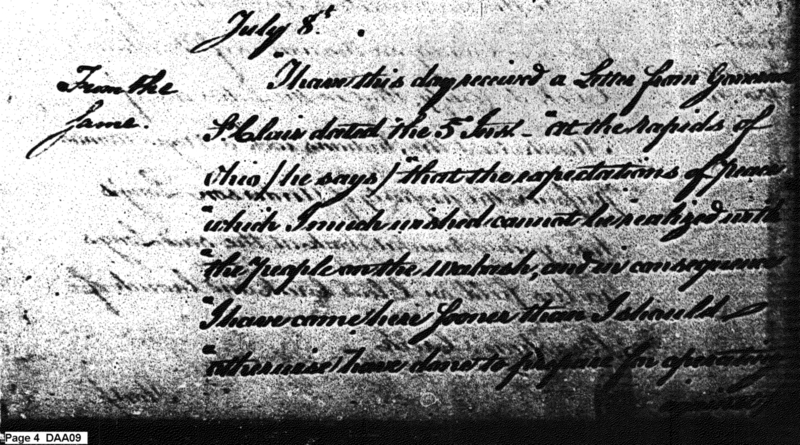 July 8t.
From the
same.
"I have this day received a Letter from Governor
St. Clair dated the 5 Inst - "at the rapids of
Ohio [he says] "that the expectations of peace
"which I much wished cannot be realized with
"the people on the Wabash, and in consequence
"I have come here sooner than I should
"otherwise have done to prepare for operating
against
Page 4 DAA09